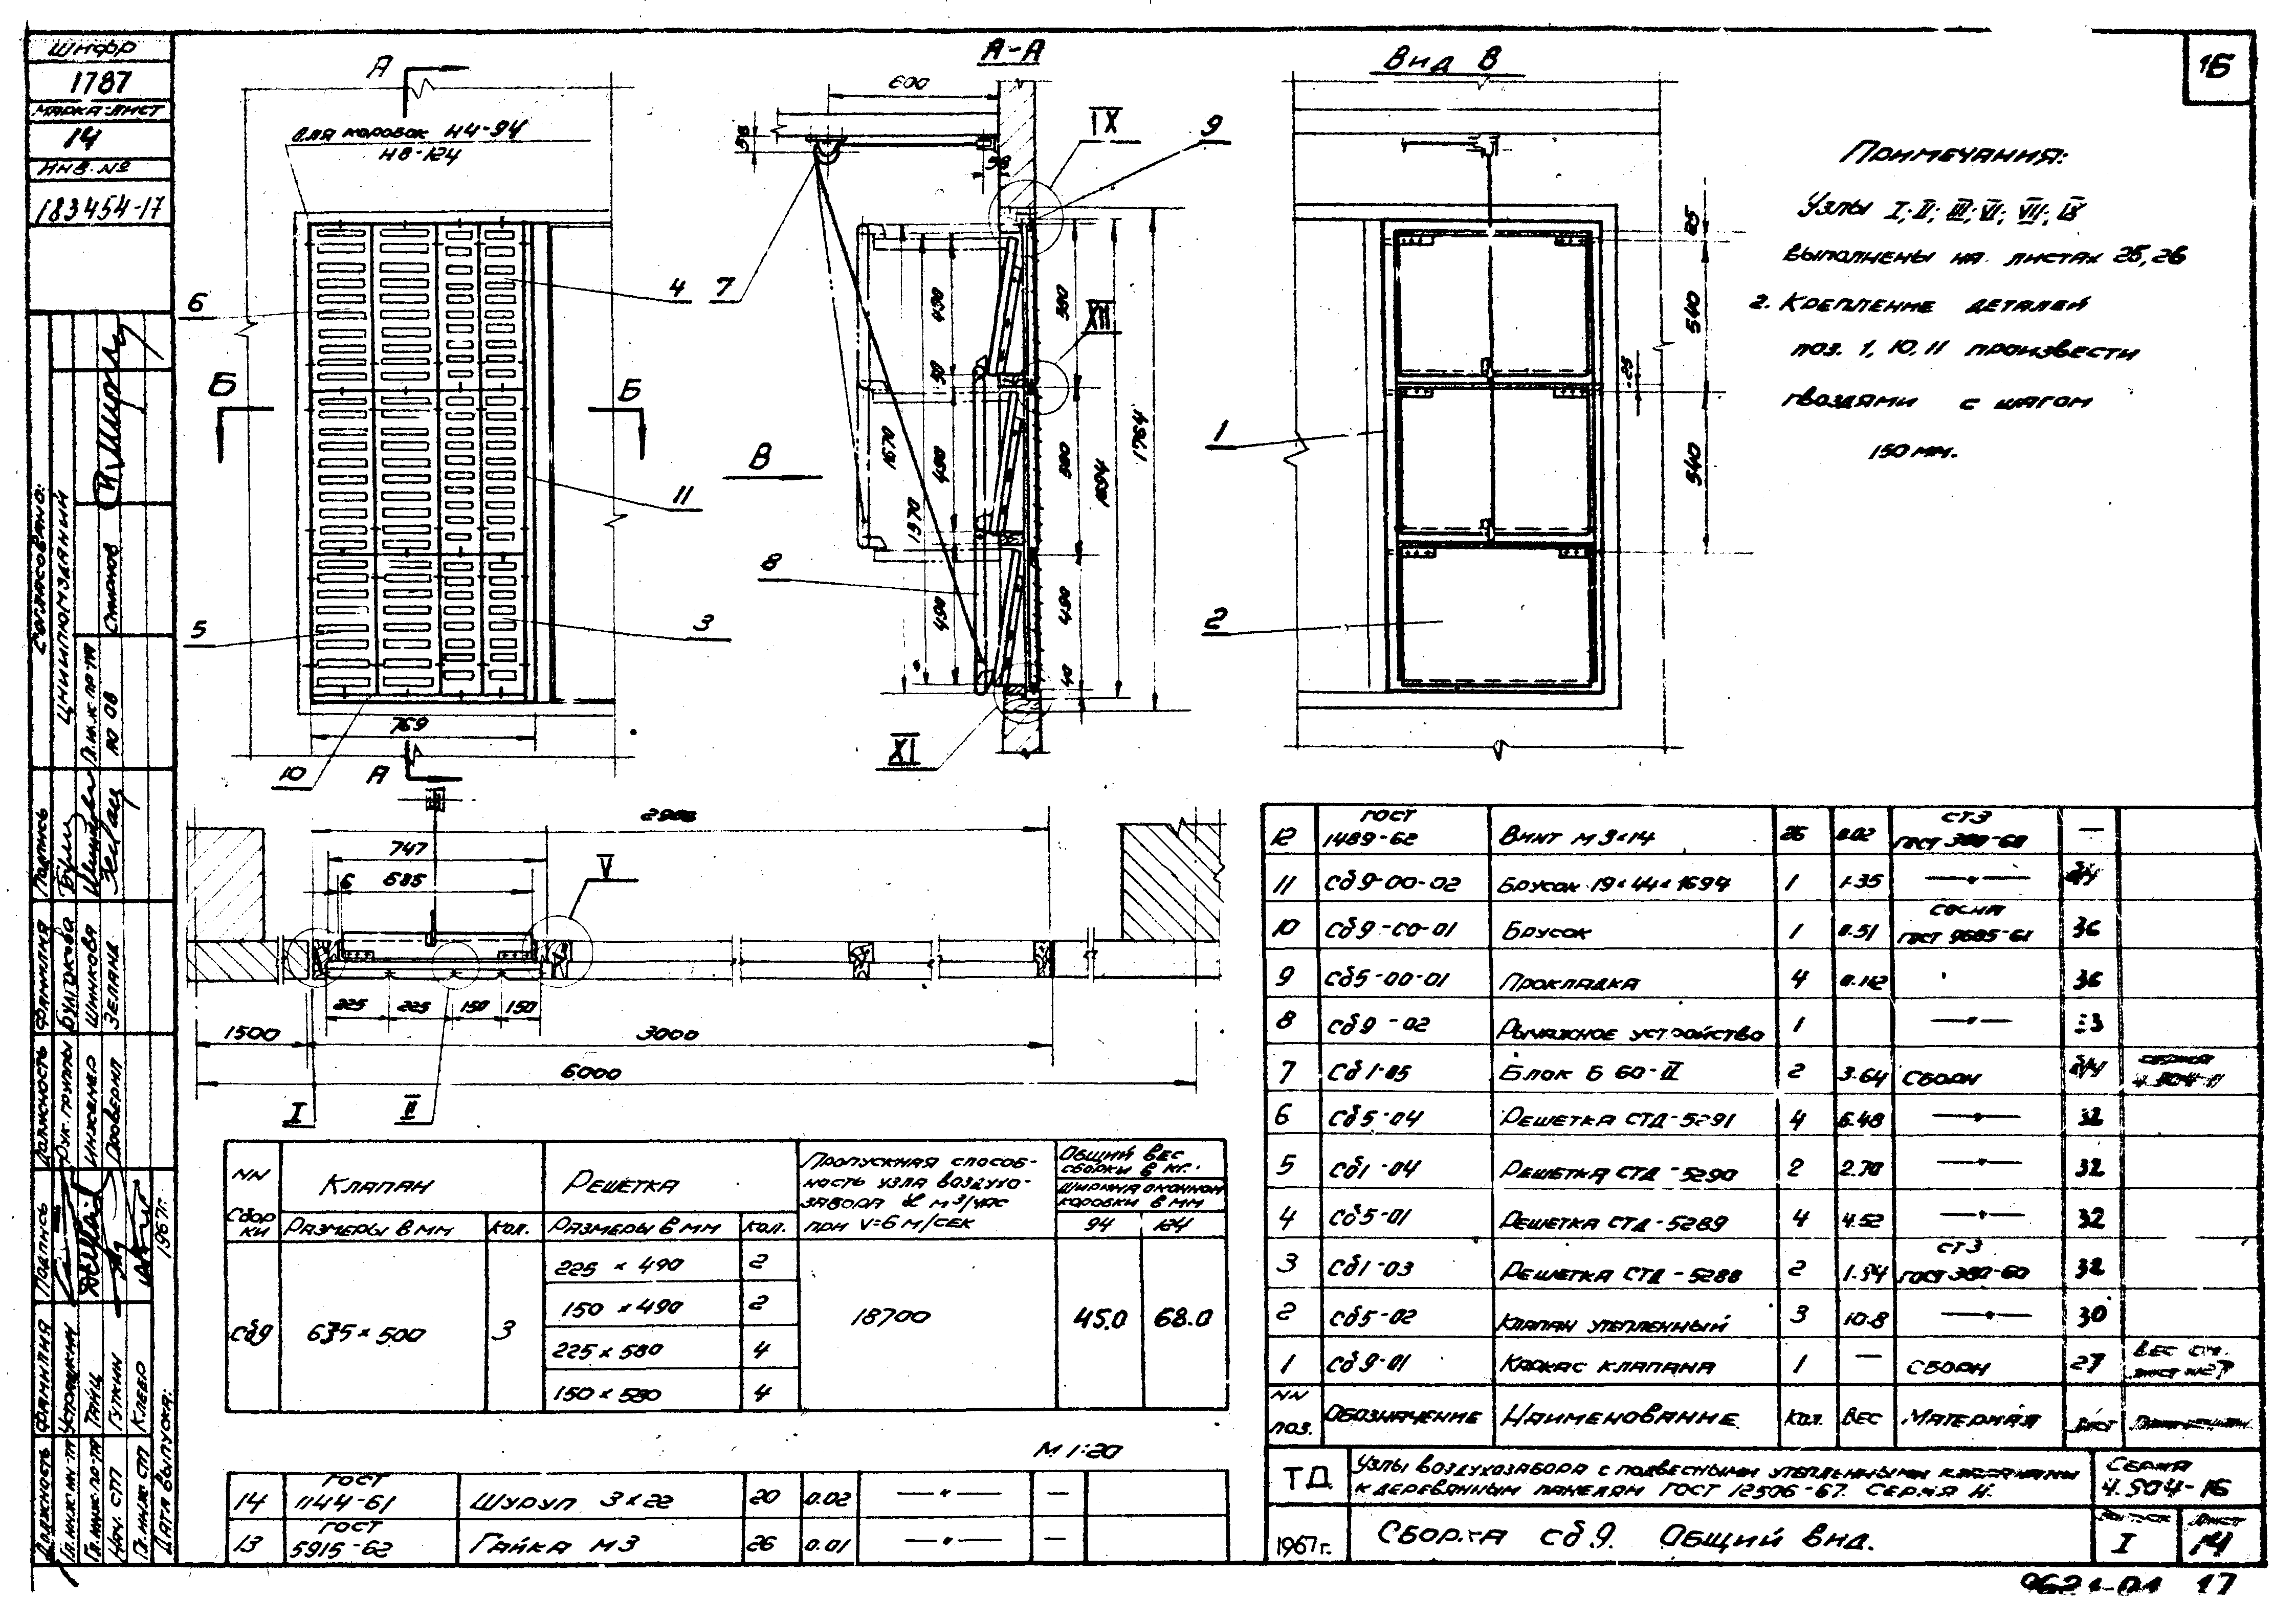 Шифр
1787
Марка-лист
14
Инв. №
183454-17
16
А
А-А
Вид В
для коробок Н4-94
Н8-124
600
IX
9
58
6
4
7
Б
Б
В
11
8
5
3
769
10
А
XI
XII
490
50
490
490
1670
1570
580
580
490
40
1694
1764
1
2
25
540
25
540
Примечания:
Узлы I; II; III; VI; VII; IX
выполнены на листах 25, 26
2. Крепление деталей
поз. 1, 10, 11 произвести
гвоздями с шагом
150 мм.
747
685
6
V
225 225 150 150
1500
3000
6000
I
II
NN
Сборки
Клапан
Размеры в мм
кол.
Решетка
Размеры в мм
кол.
Пропускная способ-
ность узла воздухо-
забора L м³/час
при V=6 м/сек
Общий вес
сборки в кг.
Ширина оконной
коробки в мм
94 124
Сб9
635 × 500
3
225 × 490 2
150 × 490 2
225 × 580 4
150 × 580 4
18700
45.0
68.0
М 1:20
14 ГОСТ 1144-61 Шуруп 3×22 20 0.02 —"— —
13 ГОСТ 5915-62 Гайка М3 26 0.01 —"— —
12 ГОСТ 1489-62 Винт М3×14 26 0.02 СТ3 ГОСТ 380-60 —
11 Сб9-00-02 Брусок 19×44×1694 1 1.35 —"—
10 Сб9-00-01 Брусок 1 0.51 сосна ГОСТ 9685-61 36
9 Сб5-00-01 Прокладка 4 36
8 Сб9-02 Рычажное устройство 1 —"— 33
7 Сб1-05 Блок Б 60-II 2 3.64 Сборн
6 Сб5-04 Решетка СТД-5291 4 6.48 —"— 32
5 Сб1-04 Решетка СТД-5290 2 2.70 —"— 32
4 Сб5-01 Решетка СТД-5289 4 4.52 —"— 32
3 Сб1-03 Решетка СТД-5288 2 1.94 СТ3 ГОСТ 380-60 32
2 Сб5-02 Клапан утепленный 3 10.8 —"— 30
1 Сб9-01 Каркас клапана 1 — Сборн 27 Вес см. лист №27
NN поз. Обозначение Наименование Кол. Вес Материал Лист
ТД
Узлы воздухозабора с подвесными утепленными клапанами
к деревянным панелям ГОСТ 12506-67. Серия Н.
Серия
4.904-16
1967г.
Сборка сб 9. Общий вид.
Выпуск
I
Лист
14
9621-01 17
Согласовано:
ЦНИИПромзданий
Гл. инж. пр-та
по ОВ
Симонов
Должность
Фамилия
Подпись
Рук. группы
Булгакова
Инженер
Шинкова
Проверил
Зеланд
Должность
Фамилия
Подпись
Гл. инж. ин-та
Гл. инж. пр-та
Тайц
Нач. СТП
Гуткин
Гл. инж. СТП
Клебо
Дата выпуска:
1967г.